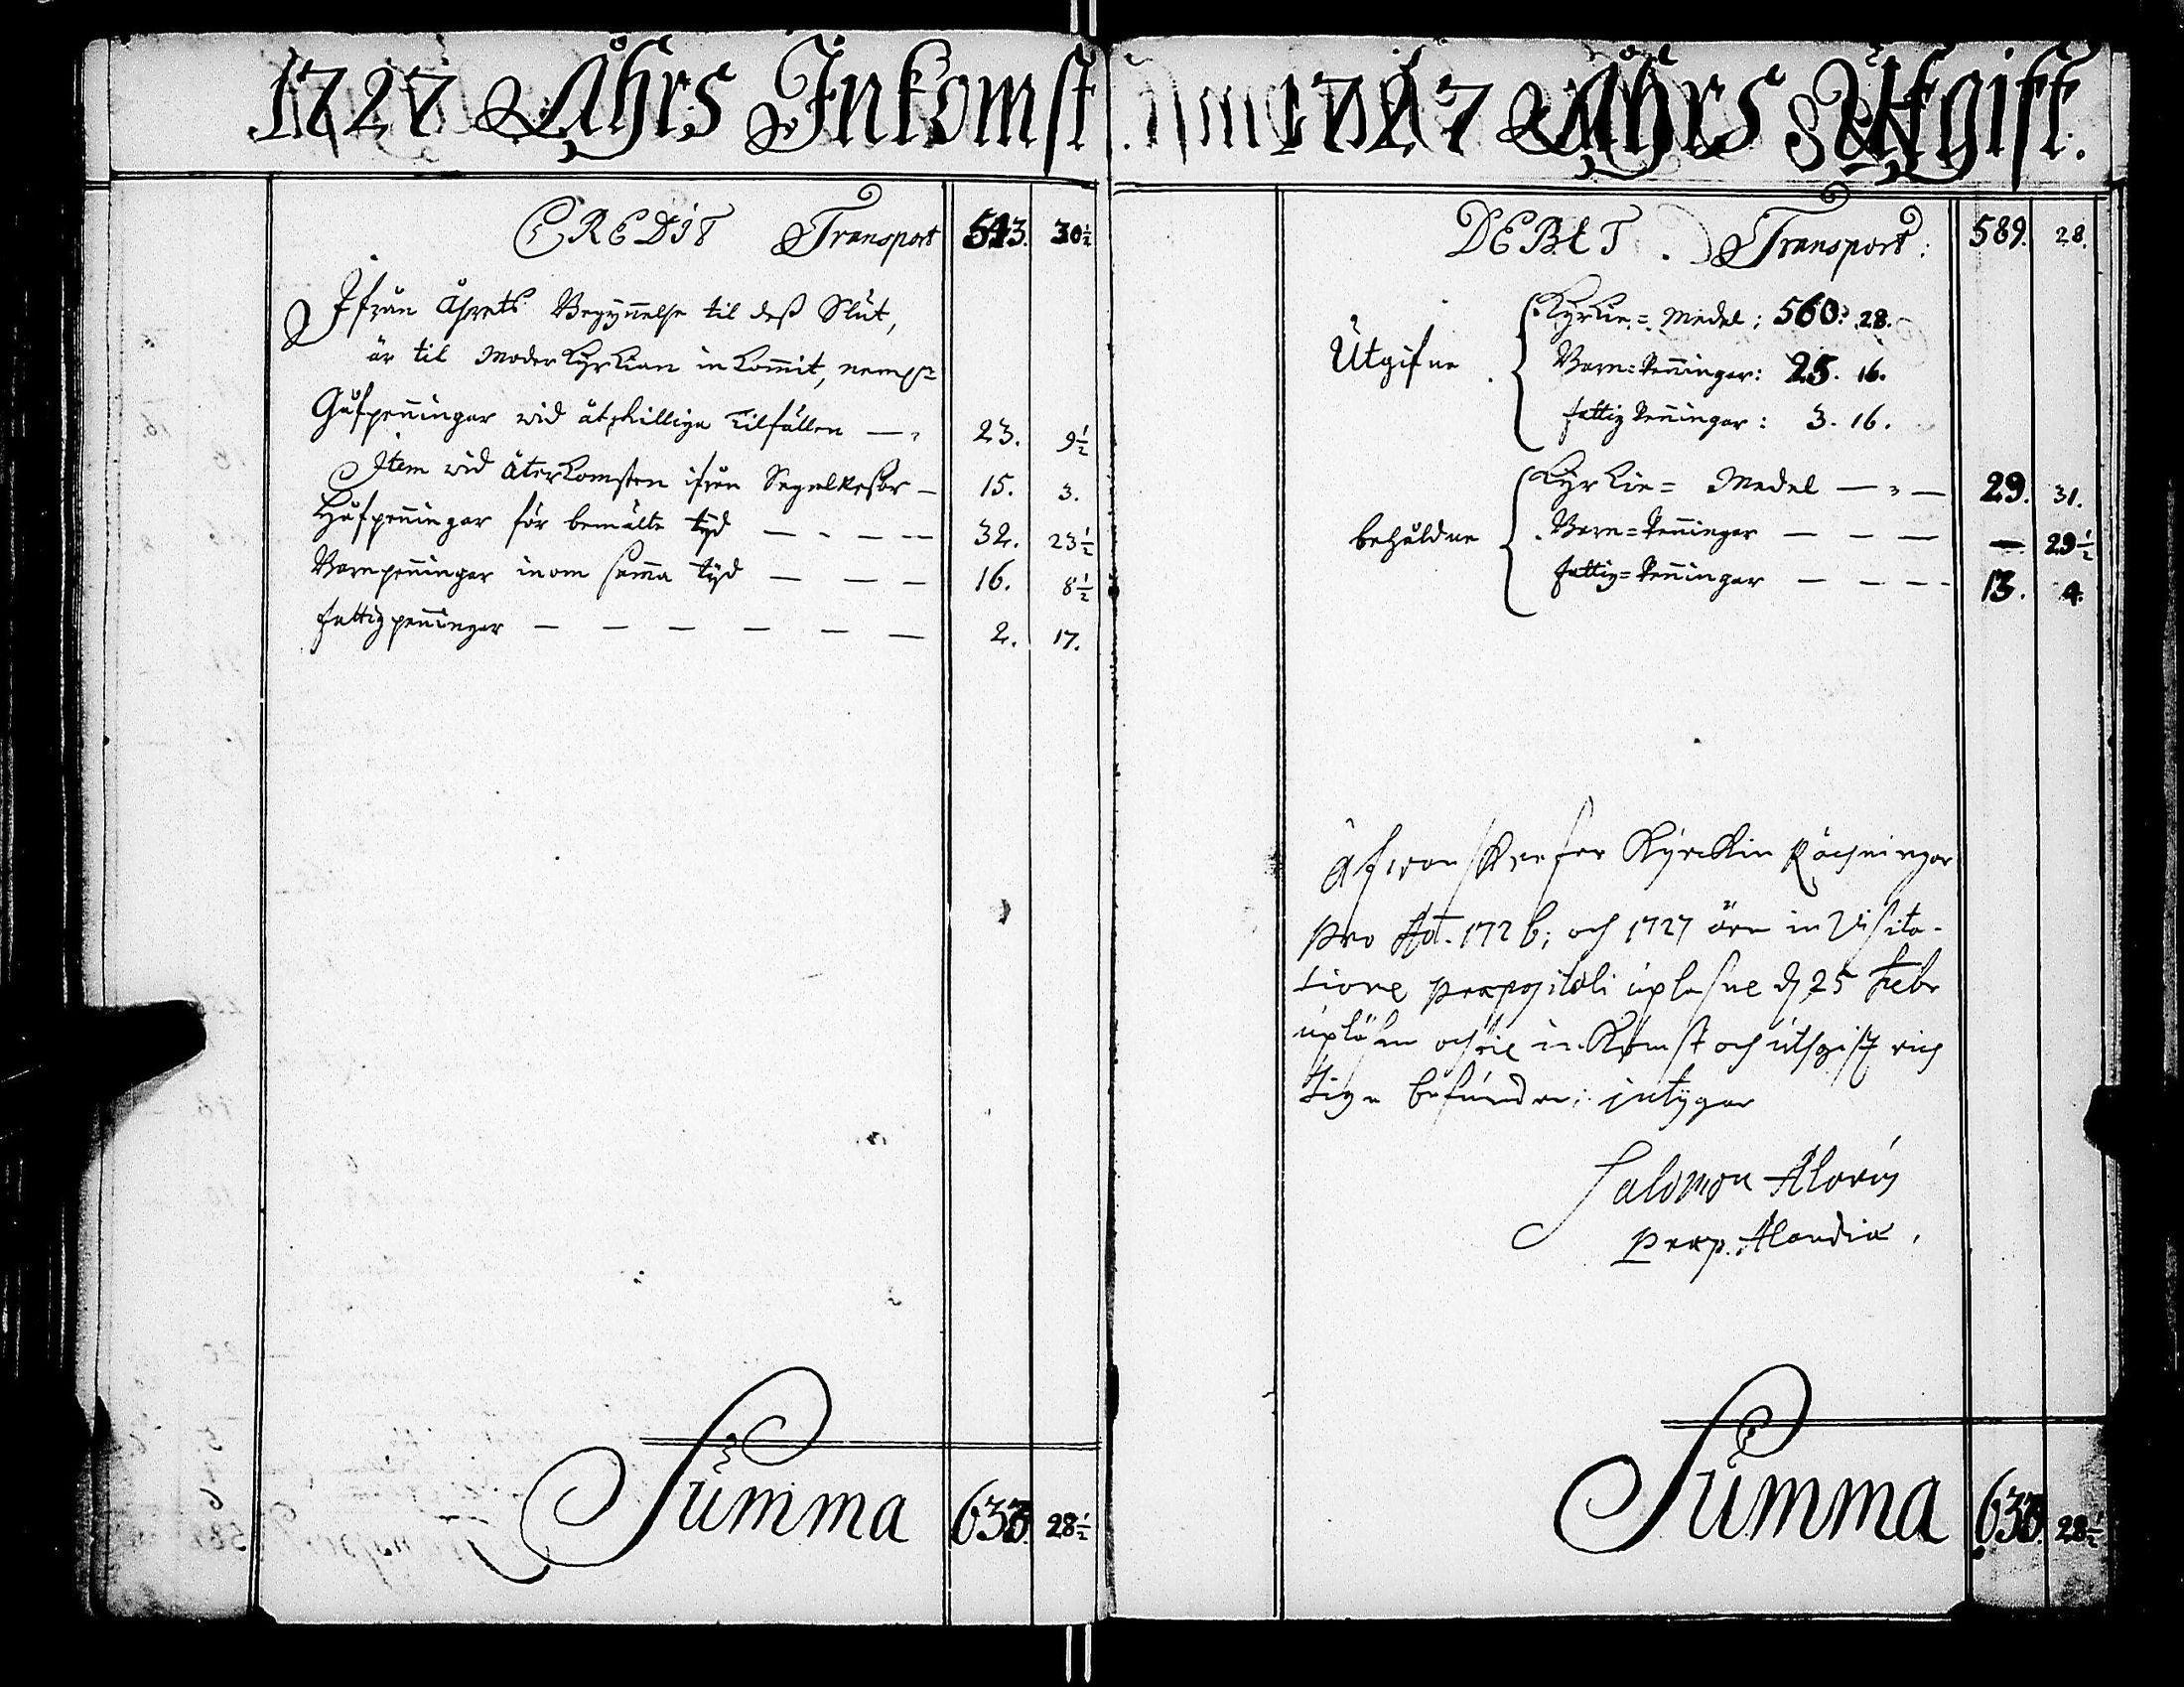 1727 Åhrs Inkomst
CREDIT Transport 543. 30½
Ifrån åhrets Begynnelse til dess Slut,
är til Moderkyrkian inkommit, nempl
Gåfpenningar wid åtskillige Tilfällen — 23. 9½
Item wid återkomsten ifrån — 15. 3.
Håfpenningar för bemälte tijd — — — 32. 23½
Barnpenningar inom samma tijd — — — 16. 8½
fattigpenningar — — — — — — 2. 17.
Summa 633. 28½
1727 Åhrs Utgift.
DEBET. Transport: 589. 28.
Utgifne
Kyrkie=Medel: 560: 28.
Barn=Penningar: 25. 16.
fattig Penningar: 3. 16.
behåldne
Kyrkie=Medel — — 29. 31.
Barn=Penningar — — — — 29½
fattig=Penningar — — — 13. 4.
Kyrckie Räckningar
pro 1726; och 1727 äre in Visita-
tione præpositali uplesne d 25 Febr
och inkomst och utgift rich
tige befundne; intygar
Salomon
Præp. Alandiæ.
Summa 633. 28½